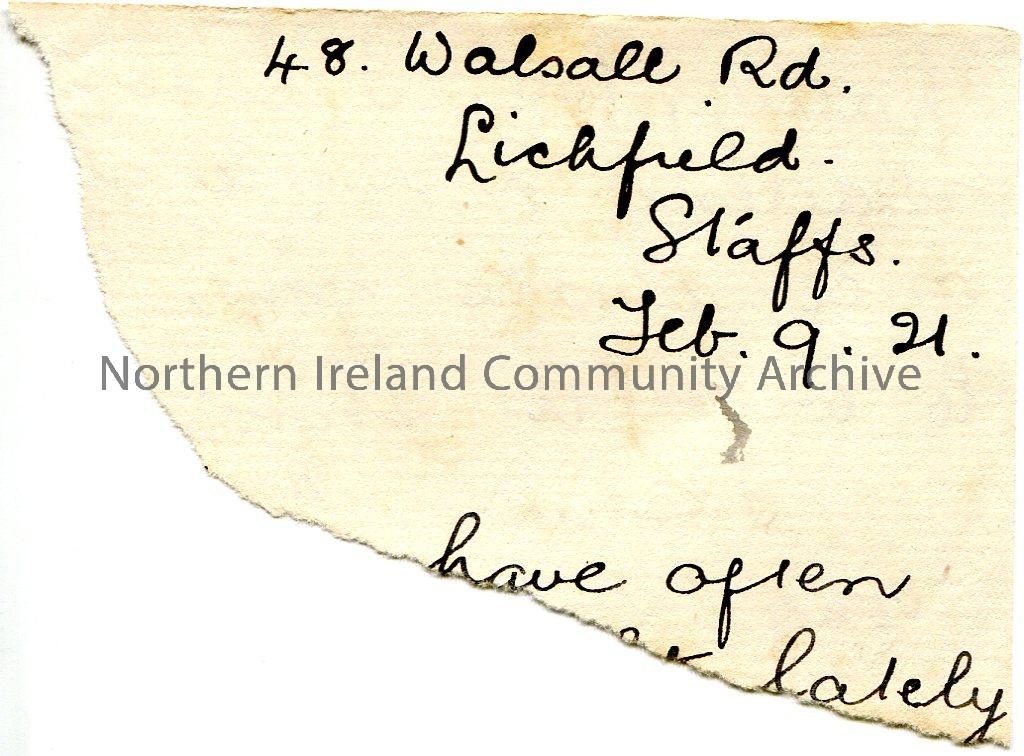 48. Walsall Rd.
Lichfield.
Staffs.
Feb. 9. 21.
Northern Ireland Community Archive
have often
lately